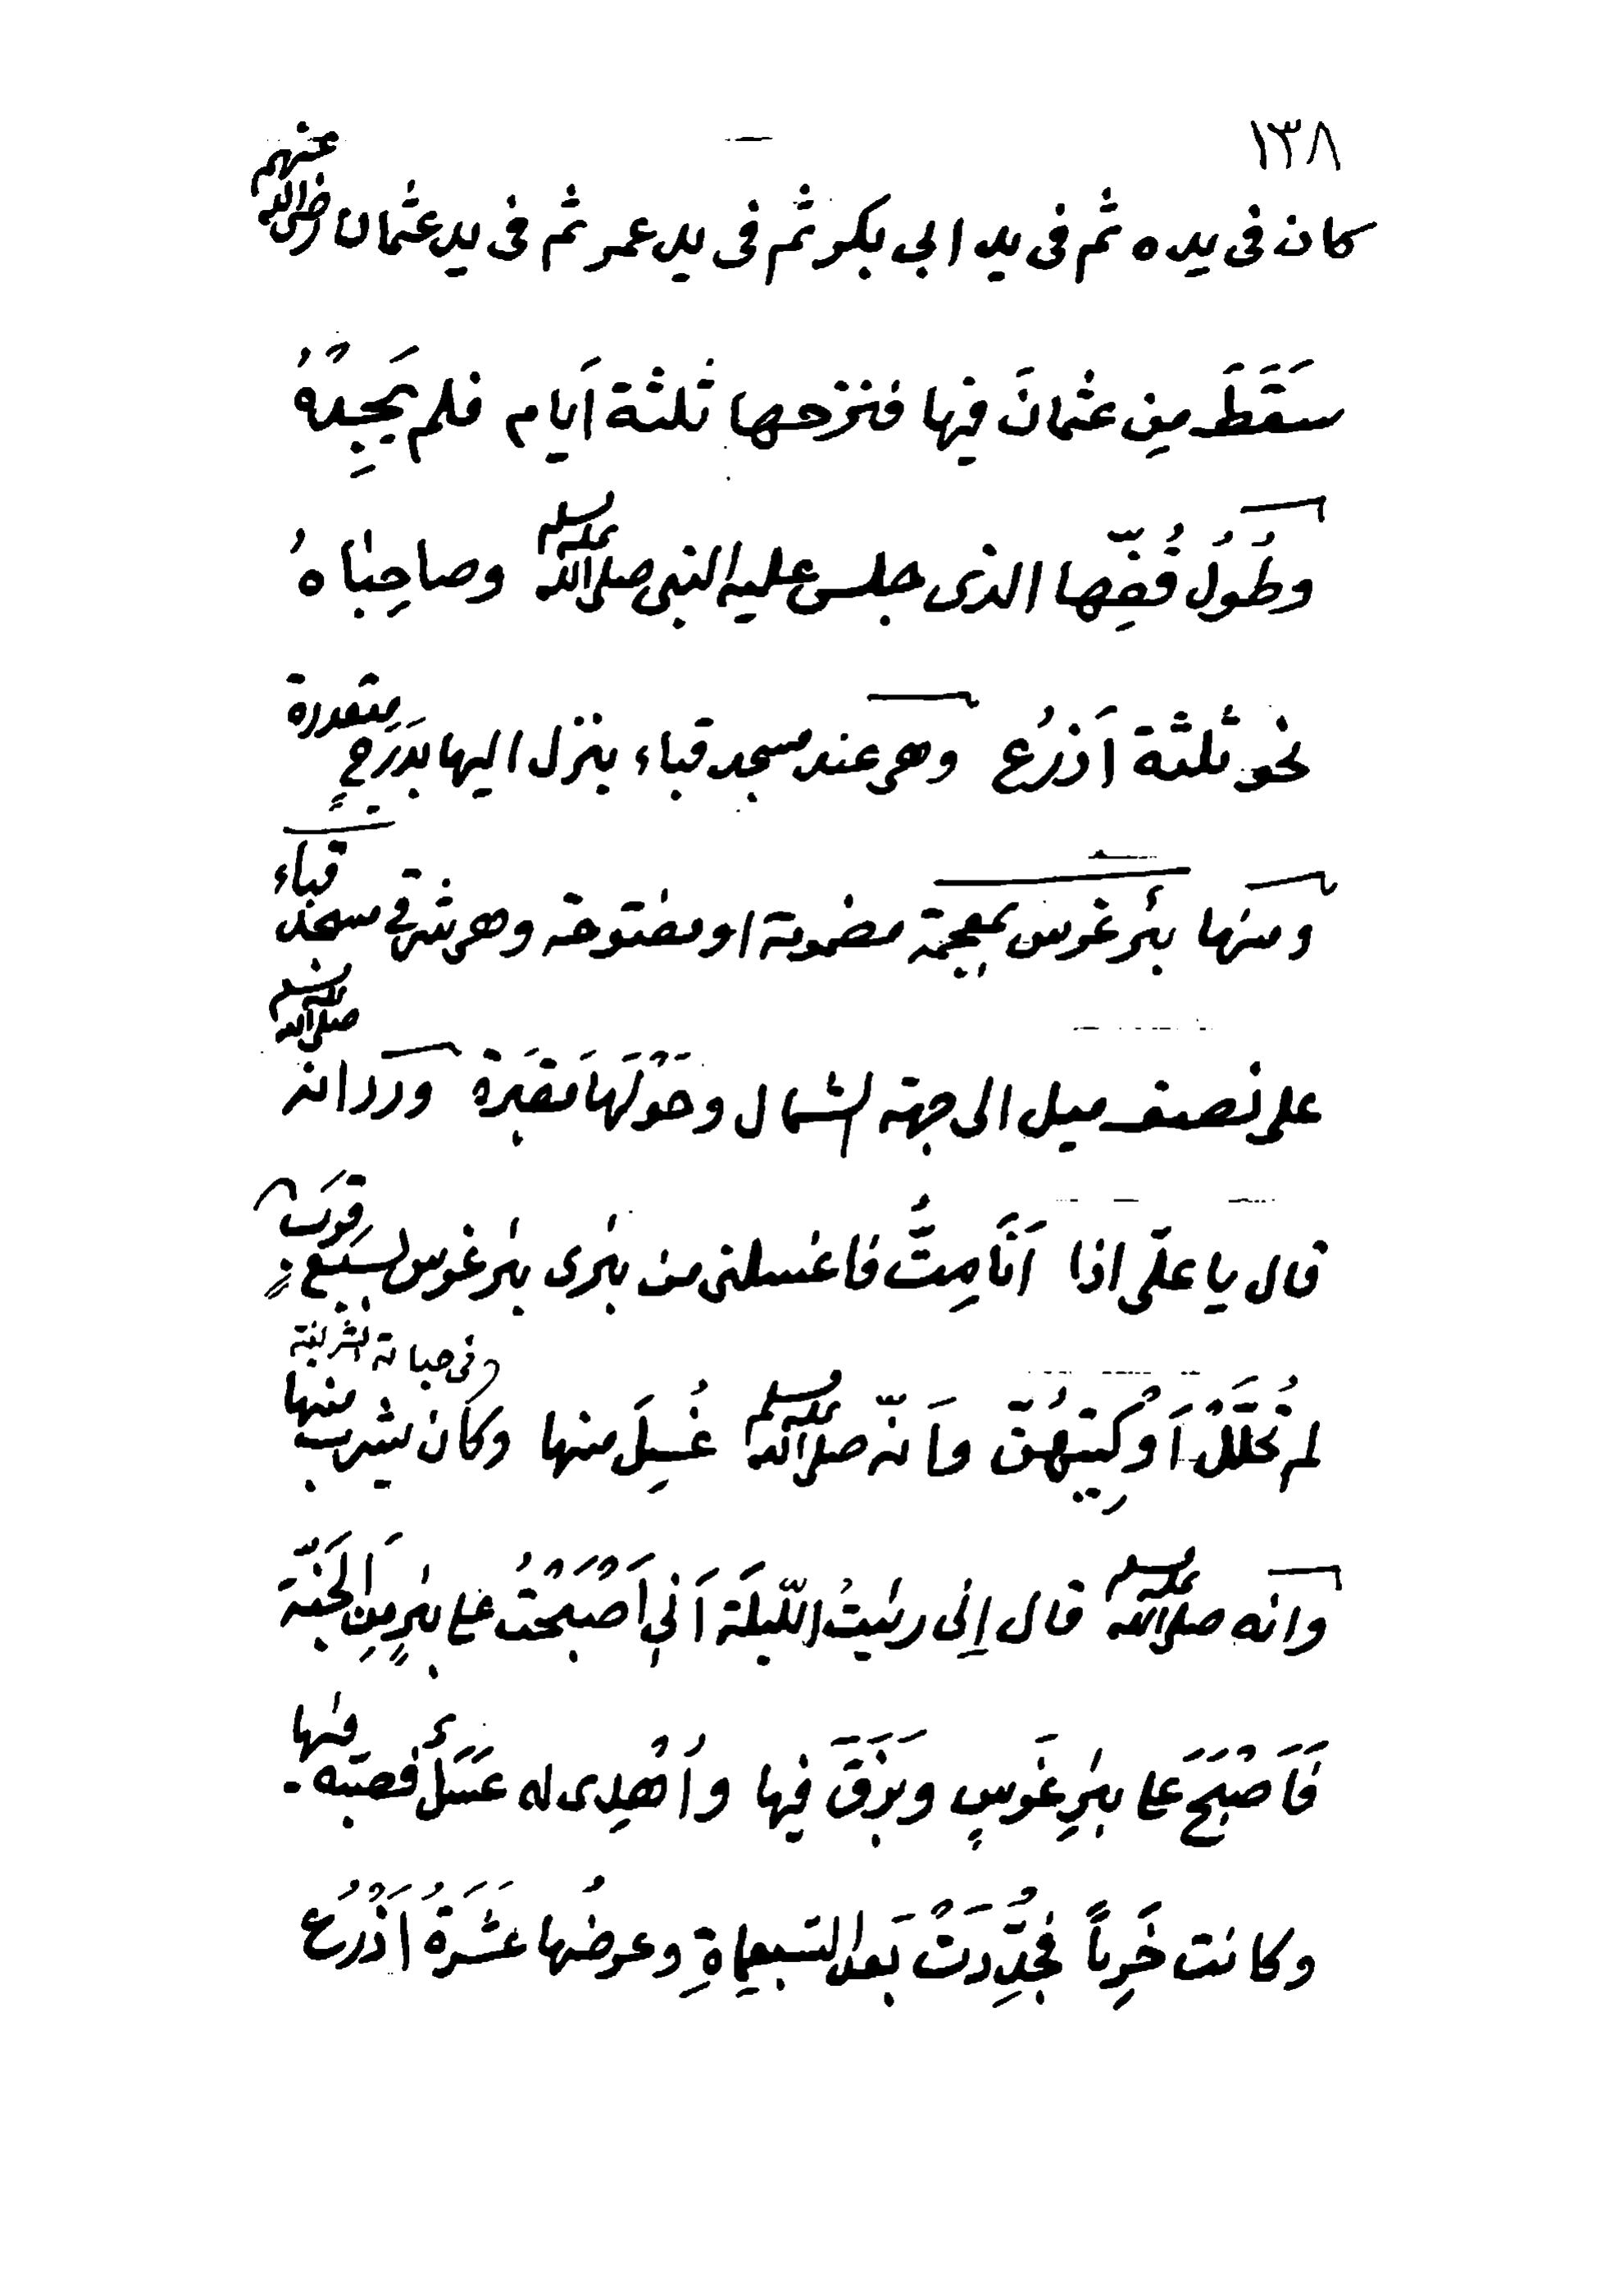 ١٣٨
كان فى يده ثم فى يد ابي بكر ثم فى يد عمر ثم فى يد عثمان رضى الله عنهم
سَقَطَ مِن عثمانَ فيها فنزحها ثلثة اَيام فلم يَجِدْهُ
وطُولُ قُفِّها الذى جلس عليه النبى صلى الله عليه وسلم وصاحِبٰاهُ
نحو ثلثة اَذرُع وهى عند مسجد قباء ينزل اليها بدَرَجٍ متعددة
ومنها بئر غوس بمعجمة مضمومة او مفتوحة وهى شرقى مسجد قباء
على نصف ميل الى جهة الشمال وحَوْلَهَا مَقبَرة وورد انه صلى الله عليه وسلم
قال يا علّى اذا اَنَا مِتُّ فاغسلنى من بئرى بئر غوس بسَبْع قِرَبٍ
لم تُحَلَّلْ اَوْكِيَتهُنّ واَنّه صلى الله عليه وسلم غُسِلَ منها وكان يشرب منها
وانه صلى الله عليه وسلم قال إنى رئيتُ اللّيلَة اَنى اَصْبَحْتُ على بئرٍ مِن الجَنّة
فَاَصْبَحَ على بئرِ غَوسٍ وبَزَقَ فيها واُهْدِى له عَسَلٌ فصبّه فيها
وكانت خَرِباً فجُدِّدَتْ بَعد السَبعمِاةِ وعرضُها عَشَرَةُ اَذْرُعٍ